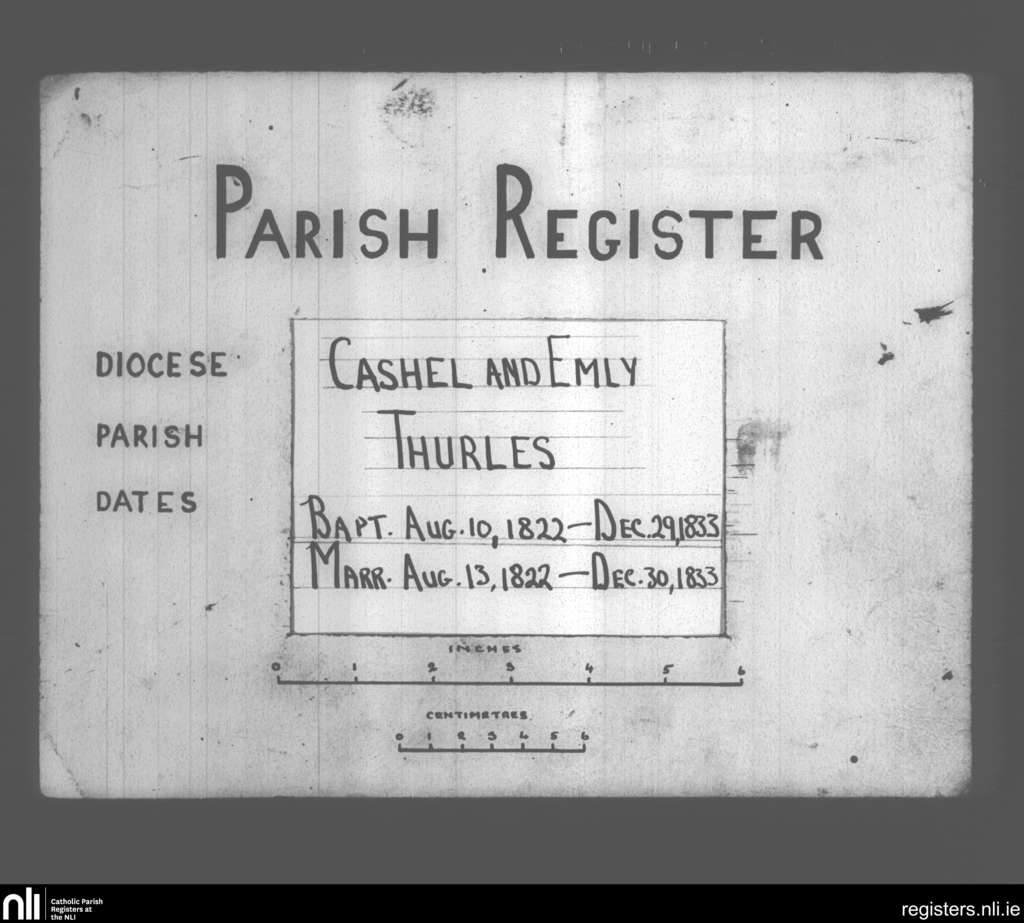 PARISH REGISTER
DIOCESE CASHEL AND EMLY
PARISH THURLES
DATES BAPT. AUG. 10, 1822 – DEC. 29, 1833
MARR. AUG. 13, 1822 – DEC. 30, 1833
INCHES
0 1 2 3 4 5 6
CENTIMETRES
0 1 2 3 4 5 6
nli Catholic Parish
Registers at
the NLI
registers.nli.ie